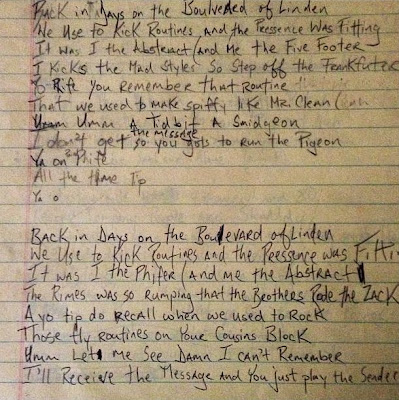 Back in Days on the Boulvered of Linden
We Use to Kick Routines and the Pressence Was Fitting
It Was I the Abstract and Me the Five Footer
I Kicks the Mad Styles So Step off the Frankfuter
Yo Phife You Remember That Routine
That we used to make spiffy like Mr. Clean
Umm Umm A Tidbit A Smidgeon
I don't get the message so you gots to run the Pigeon
Ya on Phife
All the time Tip
Ya o
Back in Days on the Boulevard of Linden
We Use to Kick Routines and the Pressence was Fitti
It was I the Phifer and me the Abstract
The Rimes was so rumping that the Brothers Rode the Zack
Ayo tip do recall when we used to Rock
Those fly routines on Your Cousins Block
Umm Let me See Damn I can't Remember
I'll Receive the Message and You just play the Sender